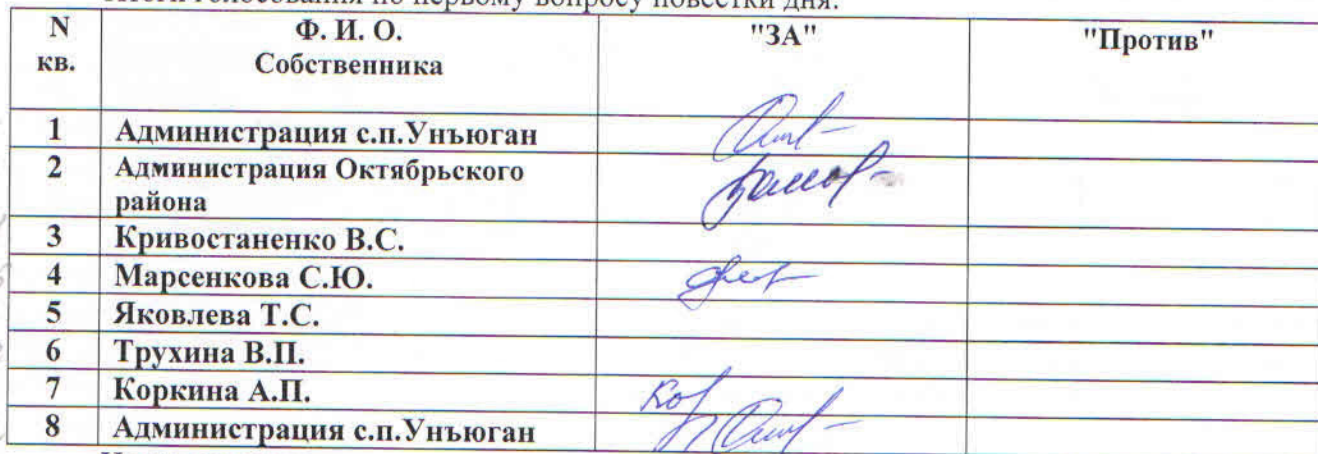 Итоги голосования по первому вопросу повестки дня:
N кв. Ф. И. О. Собственника "ЗА" "Против"
1 Администрация с.п.Унъюган
2 Администрация Октябрьского
района
3 Кривостаненко В.С.
4 Марсенкова С.Ю.
5 Яковлева Т.С.
6 Трухина В.П.
7 Коркина А.П.
8 Администрация с.п.Унъюган